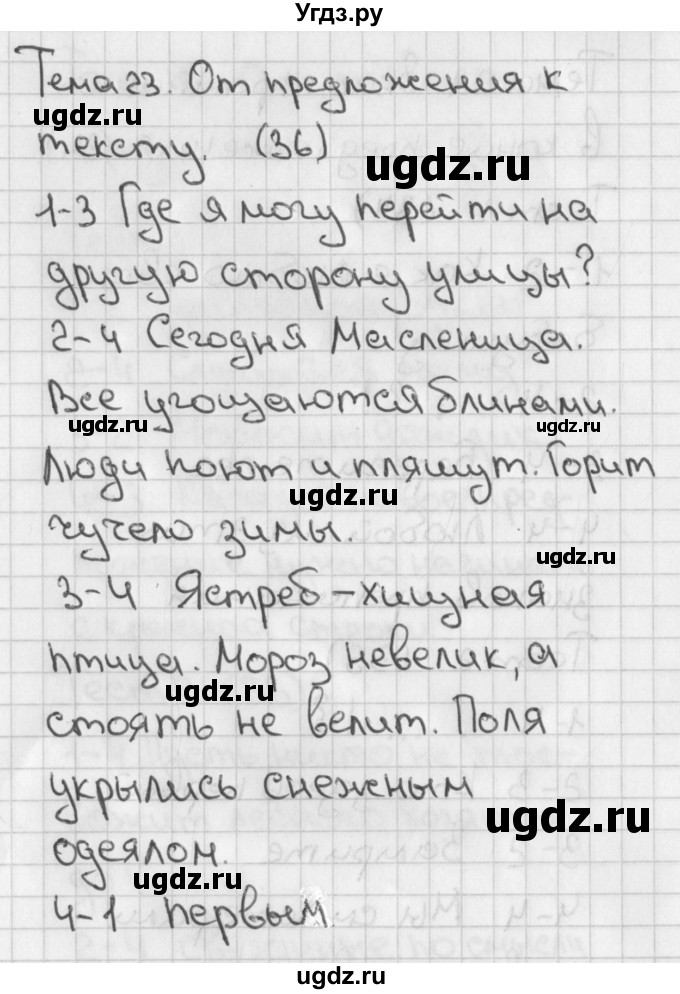 Угдз.ру
Тема 23. От предложения к
ugdz.ru
тексту. (36)
ugdz.ru
1-3 Где я могу перейти на
другую сторону улицы?
2-4 Сегодня Масленица.
Все угощаются блинами.
ugdz.ru ugdz.ru
Люди поют и пляшут. Горит
ugdz.ru
чучело зимы.
ugdz.ru
3-4 Ястреб - хищная
птица. Мороз невелик, а
ugdz.ru
стоять не велит. Поля
укрылись снежным
ugdz.ru
одеялом.
ugdz.ru
4-1 первым
ugdz.ru